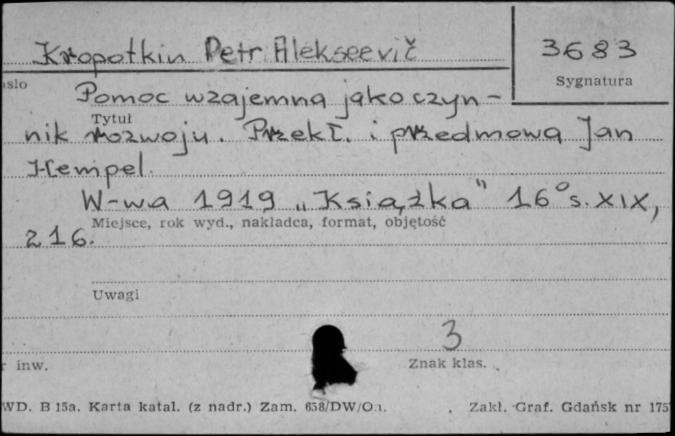 Kropotkin Petr Alekseevič
3683
Sygnatura
asło
Pomoc wzajemna jako czyn-
Tytuł
nik rozwoju. Przekł. i przedmowa Jan
Hempel.
W-wa 1919 „Książka" 16° s. XIX,
Miejsce, rok wyd., nakładca, format, objętość
216.
Uwagi
3
r inw.
Znak klas.
WD. B 15a. Karta katal. (z nadr.) Zam. 658/DW/O.
Zakł. Graf. Gdańsk nr 175